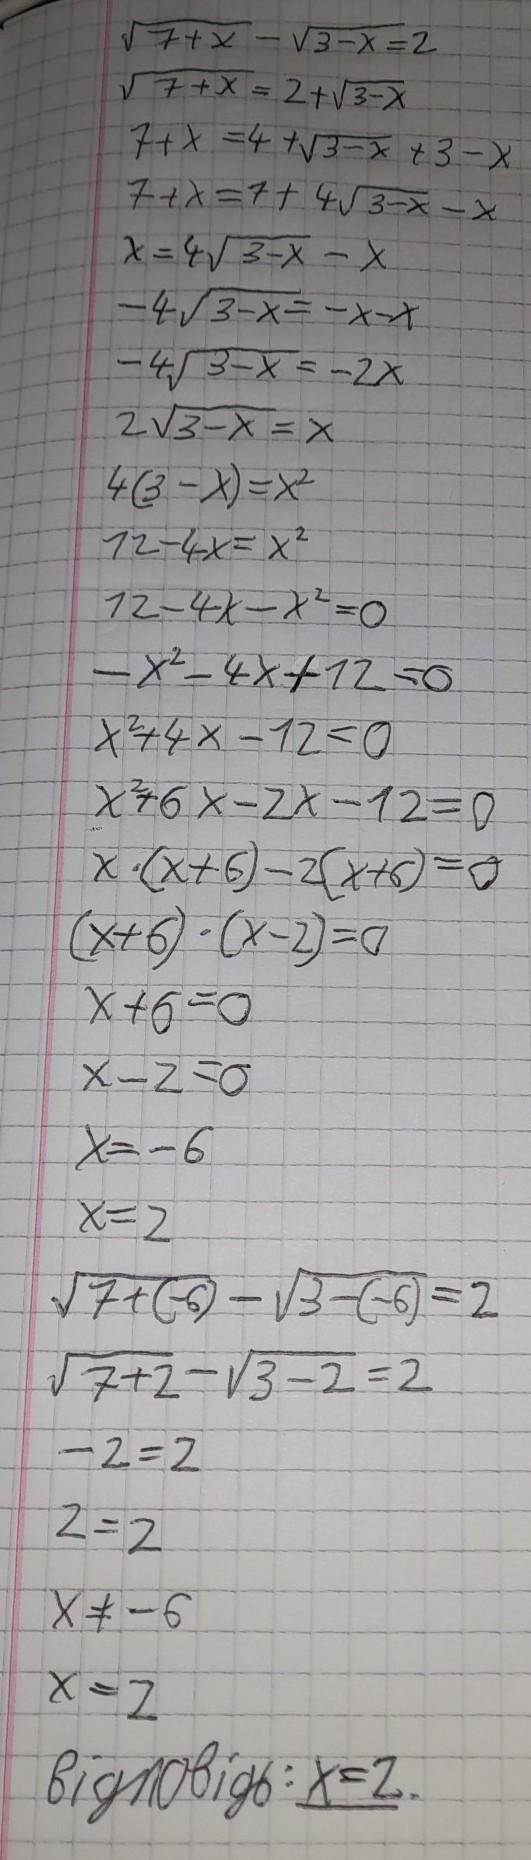 √7+x - √3-x = 2
√7+x = 2+√3-x
7+x = 4+√3-x + 3-x
7+x = 7+ 4√3-x - x
x = 4√3-x - x
-4√3-x = -x-x
-4√3-x = -2x
2√3-x = x
4(3-x) = x²
12-4x = x²
12-4x-x² = 0
-x²-4x+12 = 0
x²+4x-12 = 0
x²+6x-2x-12 = 0
x·(x+6)-2(x+6) = 0
(x+6)·(x-2) = 0
x+6 = 0
x-2 = 0
x = -6
x = 2
√7+(-6) - √3-(-6) = 2
√7+2 - √3-2 = 2
-2 = 2
2 = 2
x ≠ -6
x = 2
відповідь: x = 2.